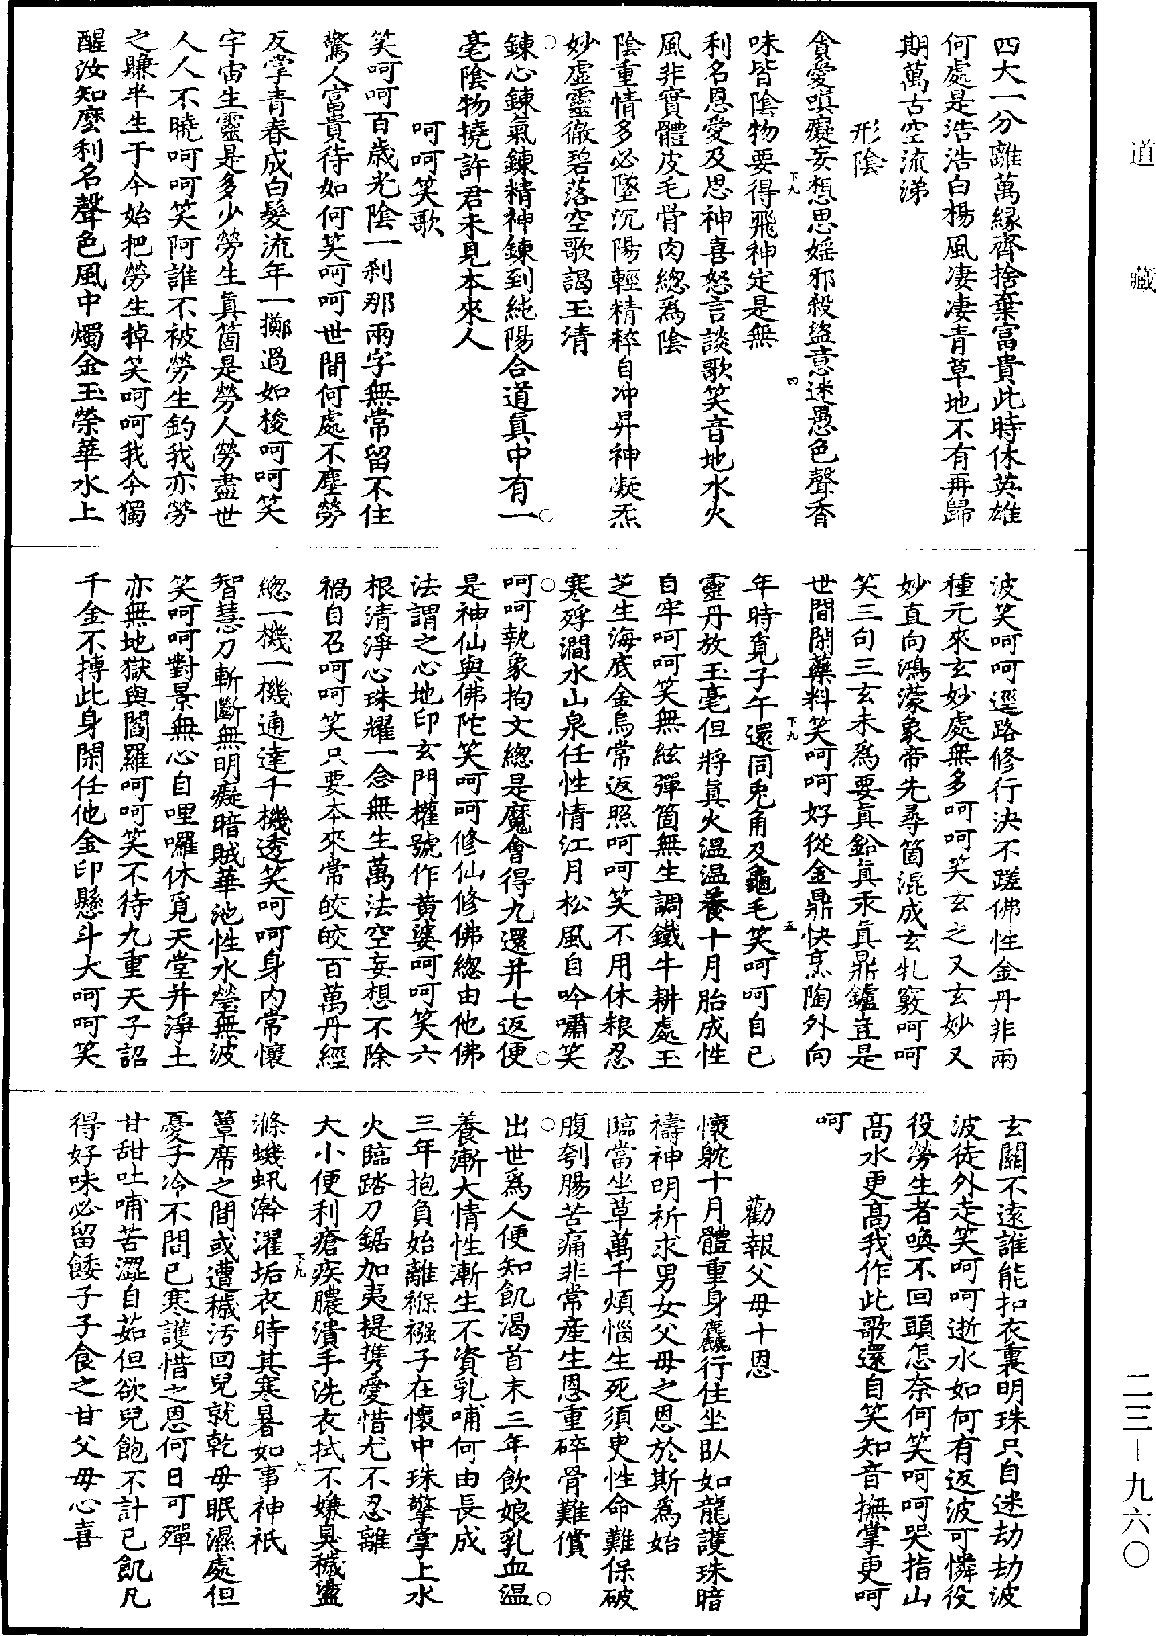 道藏
四大一分離萬緣齊捨棄富貴此時休英雄
何處是浩浩白楊風凄凄青草地不有再歸
期萬古空流涕
形陰
貪愛嗔癡妄想思婬邪殺盜意迷愚色聲香
味皆陰物要得飛神定是無
下九
四
利名恩愛及思神喜怒言談歌笑音地水火
風非實體皮毛骨肉總爲陰
陰重情多必墜沉陽輕精粹自冲昇神凝炁
妙虛靈徹碧落空歌謁玉清
鍊心鍊氣鍊精神鍊到純陽合道真中有一
毫陰物撓許君未見本來人
呵呵笑歌
笑呵呵百歲光陰一刹那兩字無常留不住
驚人富貴待如何笑呵呵世間何處不塵勞
反掌青春成白髮流年一擲過如梭呵呵笑
宇宙生靈是多少勞生真箇是勞人勞盡世
人人不曉呵呵笑阿誰不被勞生釣我亦勞
之賺半生于今始把勞生掉笑呵呵我今獨
醒汝知麼利名聲色風中燭金玉榮華水上
波笑呵呵選路修行決不蹉佛性金丹非兩
種元來玄妙處無多呵呵笑玄之又玄妙又
妙直向鴻濛象帝先尋箇混成玄牝竅呵呵
笑三句三玄未爲要真鉛真汞真鼎鑪豈是
世間閑藥料笑呵呵好從金鼎快烹陶外向
下九
五
年時覓子午還同兎角及龜毛笑呵呵自已
靈丹放玉毫但將真火温温養十月胎成性
自牢呵呵笑無絃彈箇無生調鐵牛耕處玉
芝生海底金烏常返照呵呵笑不用休粮忍
寒殍澗水山泉任性情江月松風自吟嘯笑
呵呵執象拘文總是魔會得九還并七返便
是神仙與佛陀笑呵呵修仙修佛總由他佛
法謂之心地印玄門權號作黃婆呵呵笑六
根清淨心珠耀一念無生萬法空妄想不除
禍自召呵呵笑只要本來常皎皎百萬丹經
總一機一機通達千機透笑呵呵身內常懷
智慧刀斬斷無明癡暗賊華池性水瑩無波
笑呵呵對景無心自哩囉休覓天堂并淨土
亦無地獄與閻羅呵呵笑不待九重天子詔
千金不摶此身閑任他金印懸斗大呵呵笑
玄關不遠誰能扣衣裏明珠只自迷劫劫波
波徒外走笑呵呵逝水如何有返波可憐役
役勞生者喚不回頭怎奈何笑呵呵哭指山
高水更高我作此歌還自笑知音撫掌更呵
呵
勸報父母十恩
懷躭十月體重身麤行住坐臥如龍護珠暗
禱神明祈求男女父母之恩於斯爲始
臨當坐草萬千煩惱生死須臾性命難保破
腹刳腸苦痛非常産生恩重碎骨難償
出世爲人便知飢渴首末三年飲娘乳血温
養漸大情性漸生不資乳哺何由長成
三年抱負始離褓襁子在懷中珠擎掌上水
火臨踏刀鋸加夷提攜愛惜尤不忍離
大小便利瘡疾膿潰手洗衣拭不嫌臭穢盪
滌蟣蝨澣濯垢衣時其寒暑如事神祇
下九
六
簟席之間或遭穢汚回兒就乾母眠濕處但
憂子冷不問已寒護惜之恩何日可殫
甘甜吐哺苦澀自茹但欲兒飽不計已飢凡
得好味必留餧子子食之甘父母心喜
二三—九六〇